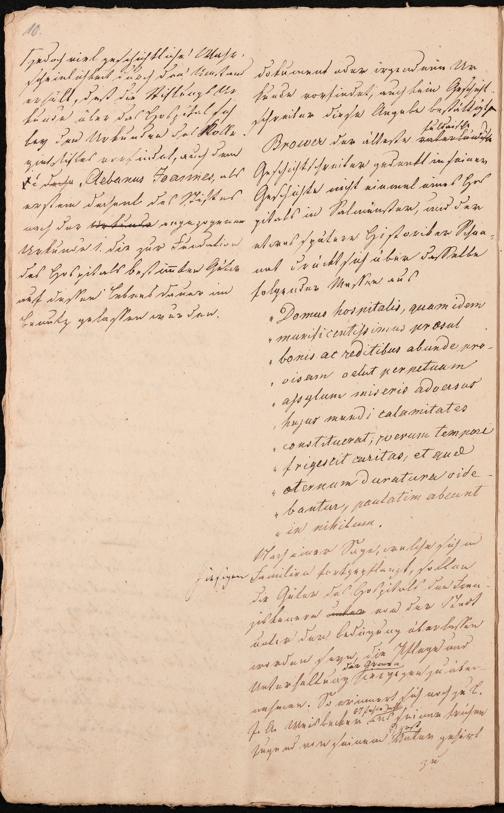 10.
jedoch viel geschichtliche Wahr-
scheinlichkeit durch den Umstand
erhält, daß die Stiftungs Ur-
kunde über das Hospital, sich
bey den Urkunden des Kolle-
giatstiftes vorfindet, auch dem
Albanus Joannes, als
erstem dechant des Stiftes
nach der Urkunde angezogenen
Urkunde 1. die zur Fundation
des Hospitals bestimmten Güter
auf dessen Lebensdauer im
benutz gelassen wurden.
dokument oder irgend eine Ur-
kunde vorfindet, auch kein Geschicht-
schreiber diese Angabe bestättigt
fuldische
Brower der älteste
Geschichtschreiber gedenkt in seiner
Geschichte nicht einmal eines Hos-
pitals in Salmünster, und der
etwas spätere Historiker Schan-
nat drückt sich über dasselbe
folgender Massen aus
„Domus hospitalis, quam idem
„munificentissimus præsul
„bonis ac reditibus abunde pro-
„visam velut perpetuum
„assylum miseris adversus
„hujus mundi calamitates
„constituerat, verum tempore
„frigescit caritas, et quæ
„æternum duratura vide-
„bantur, paulatim abeunt
„in nihilum.
Nach einer Sage, welche sich in
hiesigen Familien fortgepflanzt, sollen
die Güter des Hospitals den Fran-
ziskanern unter von der Stadt
unter der bedingung überlassen
worden seyn, die Pflege und
Unterhaltung der Armen zu über-
nehmen. So erinnert sich noch z. B.
J. A. Weisbecker aus seiner frühen
Jugend von seinem Vater gehört
zu